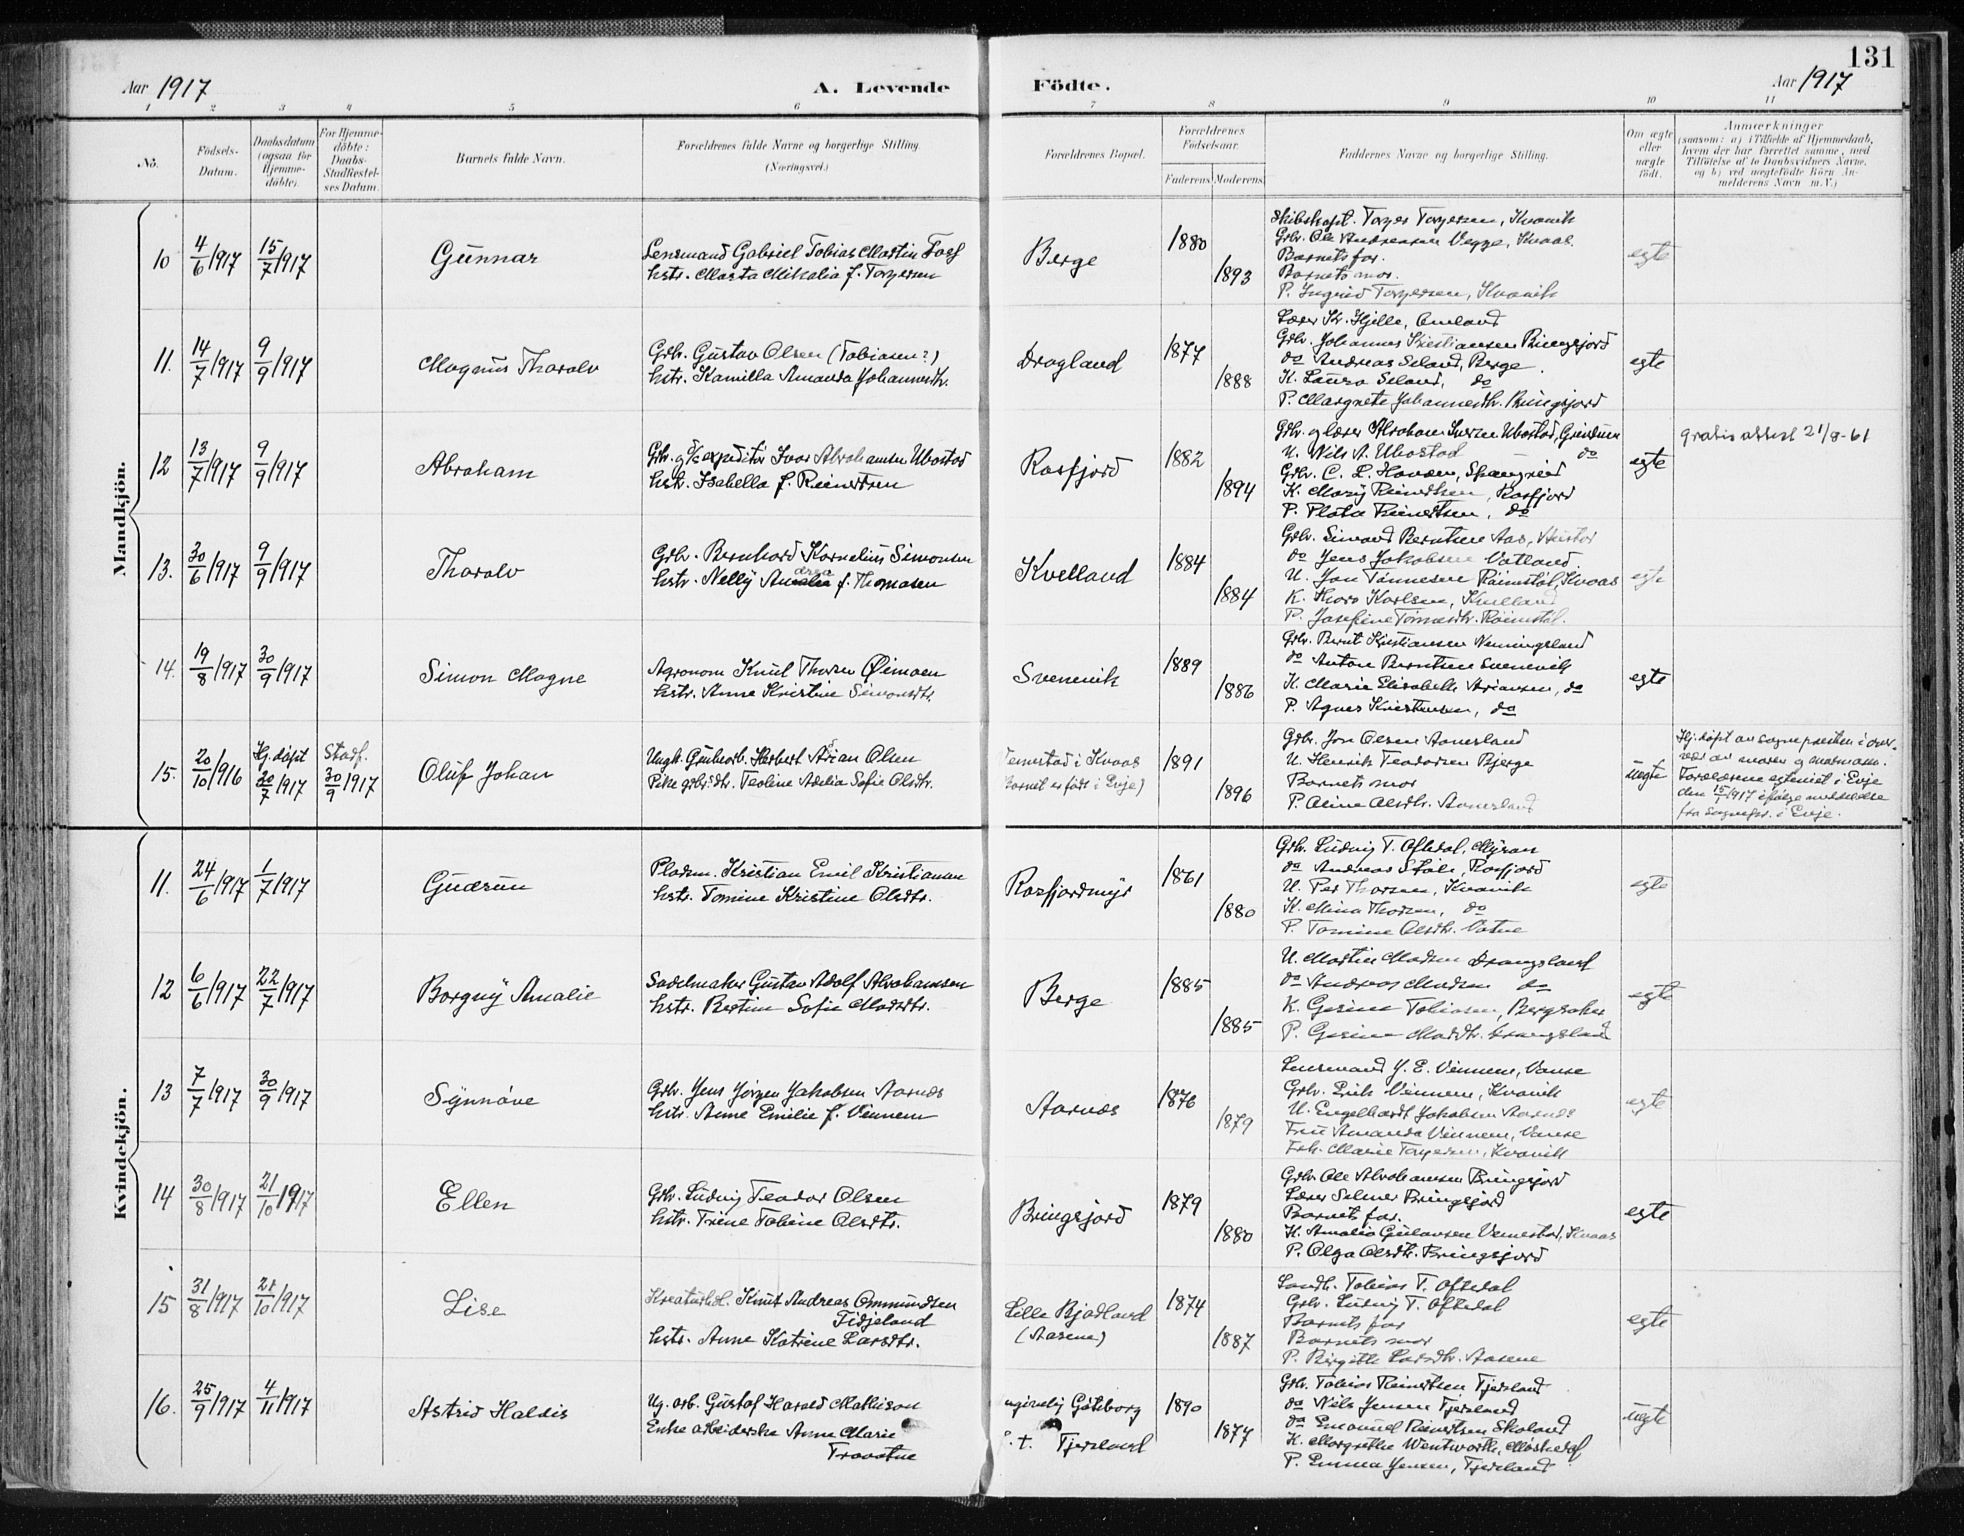 131
Aar 1917
A. Levende Födte.
Aar 1917
1 2 3 4 5 6 7 8 9 10 11
No.
Födsels-Datum.
Daabsdatum (ogsaa for Hjemme-döbte).
For Hjemme-döbte: Daabs-Stadfæstel-ses Datum.
Barnets fulde Navn.
Forældrenes fulde Navne og borgerlige Stilling. (Næringsvei.)
Forældrenes Bopæl.
Forældrenes Födselsaar.
Faderens Moderens
Faddernes Navne og borgerlige Stilling.
Om ægte eller uægte födt.
Anmærkninger
(saasom: a) i Tilfælde af Hjemmedaab, hvem der har forrettet samme, med Tilföielse af to Daabsvidners Navne, og b) ved uægtefödte Börn An-melderens Navn m.V.)
Mandkjön.
10 4/6 1917 15/7 1917 Gunnar
Lensmand Gabriel Tobias Martin
hstr. Marta Mikalia f. Torgersen
Berge 1880 1893
Skibskapt. Torger Torgersen, Kvavik
Grbr. Ole Andreassen Vegge, Kvaas.
Barnets far.
Barnets mor.
P. Ingrid Torgersen, Kvavik
egte
11. 14/7 1917 9/9 1917 Magnus Thoralv
Grbr. Gustav Olsen (Tobiasen?)
hstr. Kamilla Amanda Johannesdtr.
Drogland 1877 1888
Lærer Kr. Hjelle, Omland
Grbr. Johannes Kristiansen Bringsjord
do Andreas Seland, Berge.
K. Laura Seland, do
P. Margrete Johannesdtr. Bringsjord
egte
12 13/7 1917 9/9 1917 Abraham
Grbr. og expeditör Ivar Abrahamsen Ubostad
hstr. Isabella f. Reinertsen
Rosfjord 1882 1894
Grbr. og lærer Abraham Iversen Ubostad, Grindum
U. Nils A. Ubostad do
Grbr. C. L. Hansen, Spangereid
K. Mary Reinertsen, Rosfjord
P. Reinertsen, do
egte
gratis attest 21/8-61
13. 30/6 1917 9/9 1917 Thoralv
Grbr. Bernhard Kornelius Simonsen
hstr. Nelly f. Thomasen
Kvelland 1884 1884
Grbr. Simond Berntsen Aas,
do Jens Jakobsen Vatland.
U. Jon Tönnesen Röimstöl, Kvaas
K. Thora Karlsen, Kvelland
P. Josefine Tönnesdtr. Röimstöl.
egte
14. 19/8 1917 30/9 1917 Simon Magne
Agronom Knut Thorsen Öimoen
hstr. Anne Kristine Simonsdtr.
Svennevik 1889 1886
Grbr. Bernt Kristiansen Venningsland
do Anton Berntsen Svennevik
K. Marie Elisabeth Ariansen, do
P. Agnes Kristensen, do
egte
15. 20/10 1916 Hj. döpt 20/7 1917 Stadf. 30/9 1917 Oluf Johan
Ungk. Herbert Arian Olsen
Pike grbr.dtr. Teoline Adelia Sofie Olsdtr.
i Kvaas
(Barnet er födt i Evje)
1891 1896
Grbr. Jon Olsen Aamesland
U. Henrik Teodorsen Bjerge
Barnets mor
P. Aline Olsdtr. Aamesland
uegte
Hj. döpt av sognepresten i over-
vær av moren og mormoren.
Forældrene egteviet i Evje
den 15/1 1917 ifölge meddelelse
fra Sognepr. i Evje.
Kvindekjön.
11. 24/6 1917 1/7 1917 Gudrun
Pladsm. Kristian Emil Kristiansen
hstr. Tomine Kristine Olsdtr.
Rosfjordmyr 1861 1880
Grbr. Ludvig T. Oftedal, Myran
do Andreas Ståle, Rosfjord
U. Per Thorsen, Kvavik
K. Mina Thorsen, do
P. Tomine Olsdtr. Vatne
egte
12 6/6 1917 22/7 1917 Borgny Amalie
Sadelmaker Gustav Adolf Abrahamsen
hstr. Bertine Sofie Madsdtr.
Berge 1885 1885
U. Martin Madsen Drangsland
do Andreas Madsen do
K. Gesine Tobiasen, Bergsaker
P. Gesine Madsdtr. Drangsland
egte
13 7/7 1917 30/9 1917 Synnöve
Grbr. Jens Jörgen Jakobsen Aarnes
hstr. Anne Emilie f. Vinnem
Aarnes 1876 1879
Lensmand J. E. Vinnem, Vanse
Grbr. Erik Vinnem, Kvavik
U. Engelhardt Jakobsen Aarnes
Fru Amanda Vinnem, Vanse
Frk. Marie Torgersen, Kvavik
egte
14 30/8 1917 21/10 1917 Ellen
Grbr. Ludvig Teodor Olsen
hstr. Trine Tobine Olsdtr.
Bringsjord 1879 1880
Grbr. Ole Abrahamsen Bringsjord
Lærer Selmer Bringsjord
Barnets far.
K. Amalia Gulaksen Vemestad, Kvaas
P. Olga Olsdtr. Bringsjord
egte
15 31/8 1917 21/10 1917 Lise
Kreaturhdl. Knut Andreas Ommundsen
Fidjeland
hstr. Anne Katrine Larsdtr.
Lille Bjadland
(Aasene)
1874 1887
Landh. Tobias T. Oftedal
Grbr. Ludvig T. Oftedal
Barnets far
Barnets mor
P. Birgitte Larsdtr. Aasene
egte
16. 25/9 1917 4/11 1917 Astrid Haldis
Ug. arb. Gustaf Harald Mathison
Enke arbeiderske Anne Marie
Travatne
Göteborg
p. t. Fjersland
1890 1877
Grbr. Tobias Reinertsen Fjersland
do Nils Jensen Fjersland
do Emanuel Reinertsen Skoland
K. Margrethe Wentworth,
P. Emma Jensen, Fjersland
uegte